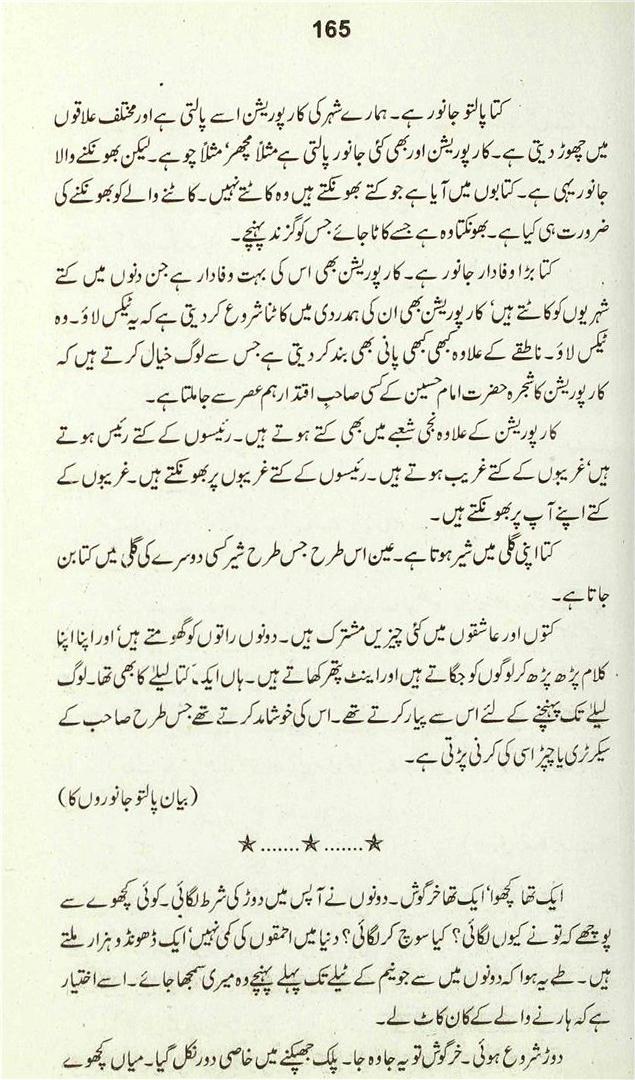 165
کتا پالتو جانور ہے۔ ہمارے شہر کی کارپوریشن اسے پالتی ہے اور مختلف علاقوں
میں چھوڑ دیتی ہے۔ کارپوریشن اور بھی کئی جانور پالتی ہے مثلاً مچھر’ مثلاً چوہے۔ لیکن بھونکنے والا
جانور یہی ہے۔ کتابوں میں آیا ہے جو کتے بھونکتے ہیں وہ کاٹتے نہیں۔ کاٹنے والے کو بھونکنے کی
ضرورت ہی کیا ہے۔ بھونکتا وہ ہے جسے کاٹا جائے جس کو گزند پہنچے۔
کتا بڑا وفادار جانور ہے۔ کارپوریشن بھی اس کی بہت وفادار ہے جن دنوں میں کتے
شہریوں کو کاٹتے ہیں’ کارپوریشن بھی ان کی ہمدردی میں کاٹنا شروع کر دیتی ہے کہ یہ ٹیکس لاؤ۔ وہ
ٹیکس لاؤ۔ ناطقے کے علاوہ کبھی کبھی پانی بھی بند کر دیتی ہے جس سے لوگ خیال کرتے ہیں کہ
کارپوریشن کا شجرہ حضرت امام حسین کے کسی صاحب اقتدار ہم عصر سے جا ملتا ہے۔
کارپوریشن کے علاوہ نجی شعبے میں بھی کتے ہوتے ہیں۔ رئیسوں کے کتے رئیس ہوتے
ہیں’ غریبوں کے کتے غریب ہوتے ہیں۔ رئیسوں کے کتے غریبوں پر بھونکتے ہیں۔ غریبوں کے
کتے اپنے آپ پر بھونکتے ہیں۔
کتا اپنی گلی میں شیر ہوتا ہے۔ عین اس طرح جس طرح شیر کسی دوسرے کی گلی میں کتا بن
جاتا ہے۔
کتوں اور عاشقوں میں کئی چیزیں مشترک ہیں۔ دونوں راتوں کو گھومتے ہیں’ اور اپنا اپنا
کلام پڑھ پڑھ کر لوگوں کو جگاتے ہیں اور اینٹ پتھر کھاتے ہیں۔ ہاں ایک کتا لیلےٰ کا بھی تھا۔ لوگ
لیلےٰ تک پہنچنے کے لئے اس سے پیار کرتے تھے۔ اس کی خوشامد کرتے تھے جس طرح صاحب کے
سیکرٹری یا چپڑاسی کی کرنی پڑتی ہے۔
(بیان پالتو جانوروں کا)
★.......★.......★
ایک تھا کچھوا’ ایک تھا خرگوش۔ دونوں نے آپس میں دوڑ کی شرط لگائی۔ کوئی کچھوے سے
پوچھے کہ تو نے کیوں لگائی؟ کیا سوچ کر لگائی؟ دنیا میں احمقوں کی کمی نہیں’ ایک ڈھونڈو ہزار ملتے
ہیں۔ طے یہ ہوا کہ دونوں میں سے جو نیم کے ٹیلے تک پہلے پہنچے وہ میری سمجھا جائے۔ اسے اختیار
ہے کہ ہارنے والے کے کان کاٹ لے۔
دوڑ شروع ہوئی۔ خرگوش تو یہ جا وہ جا۔ پلک جھپکنے میں خاصی دور نکل گیا۔ میاں کچھوے